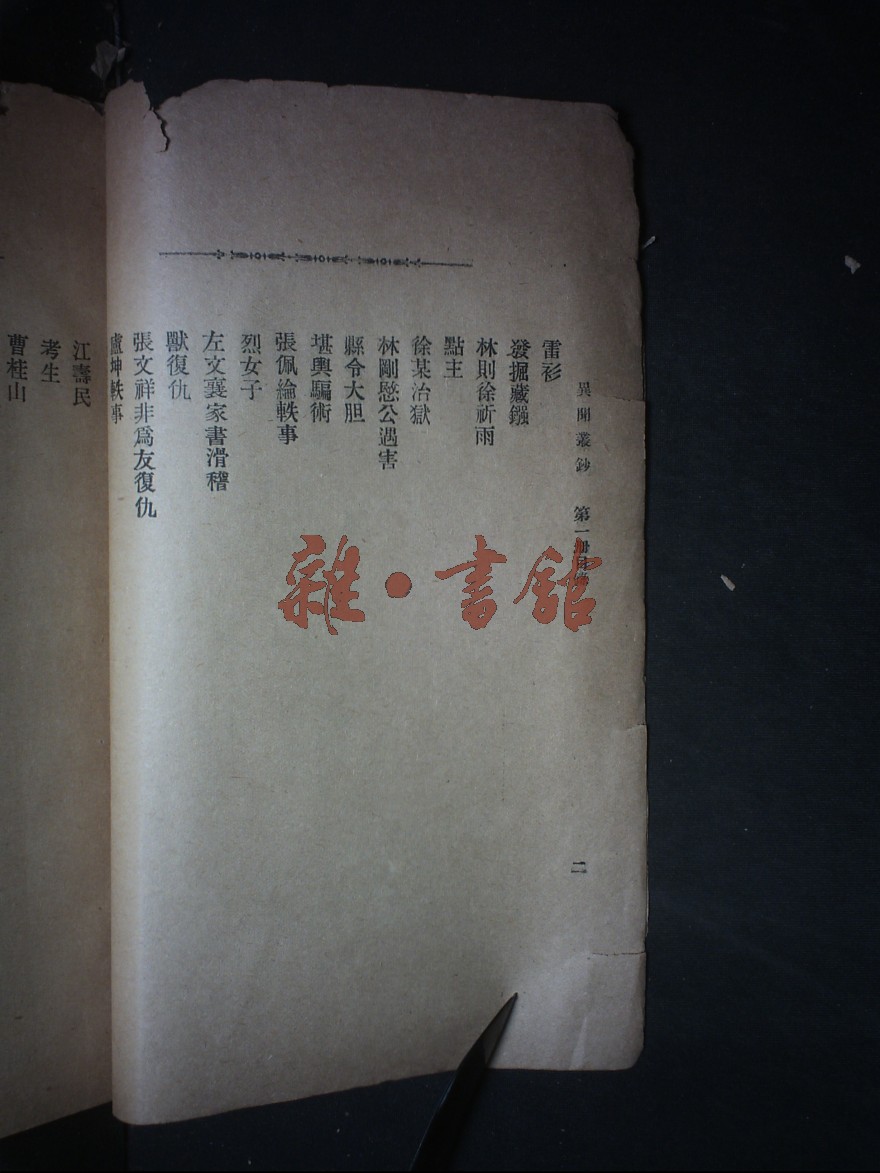 異聞叢鈔 第一冊目錄
二
雷衫
發掘藏鏹
林則徐祈雨
點主
徐某治獄
林剛愍公遇害
縣令大胆
堪輿騙術
張佩綸軼事
烈女子
左文襄家書滑稽
獸復仇
張文祥非爲友復仇
盧坤軼事
江壽民
考生
曹桂山
雜·書館